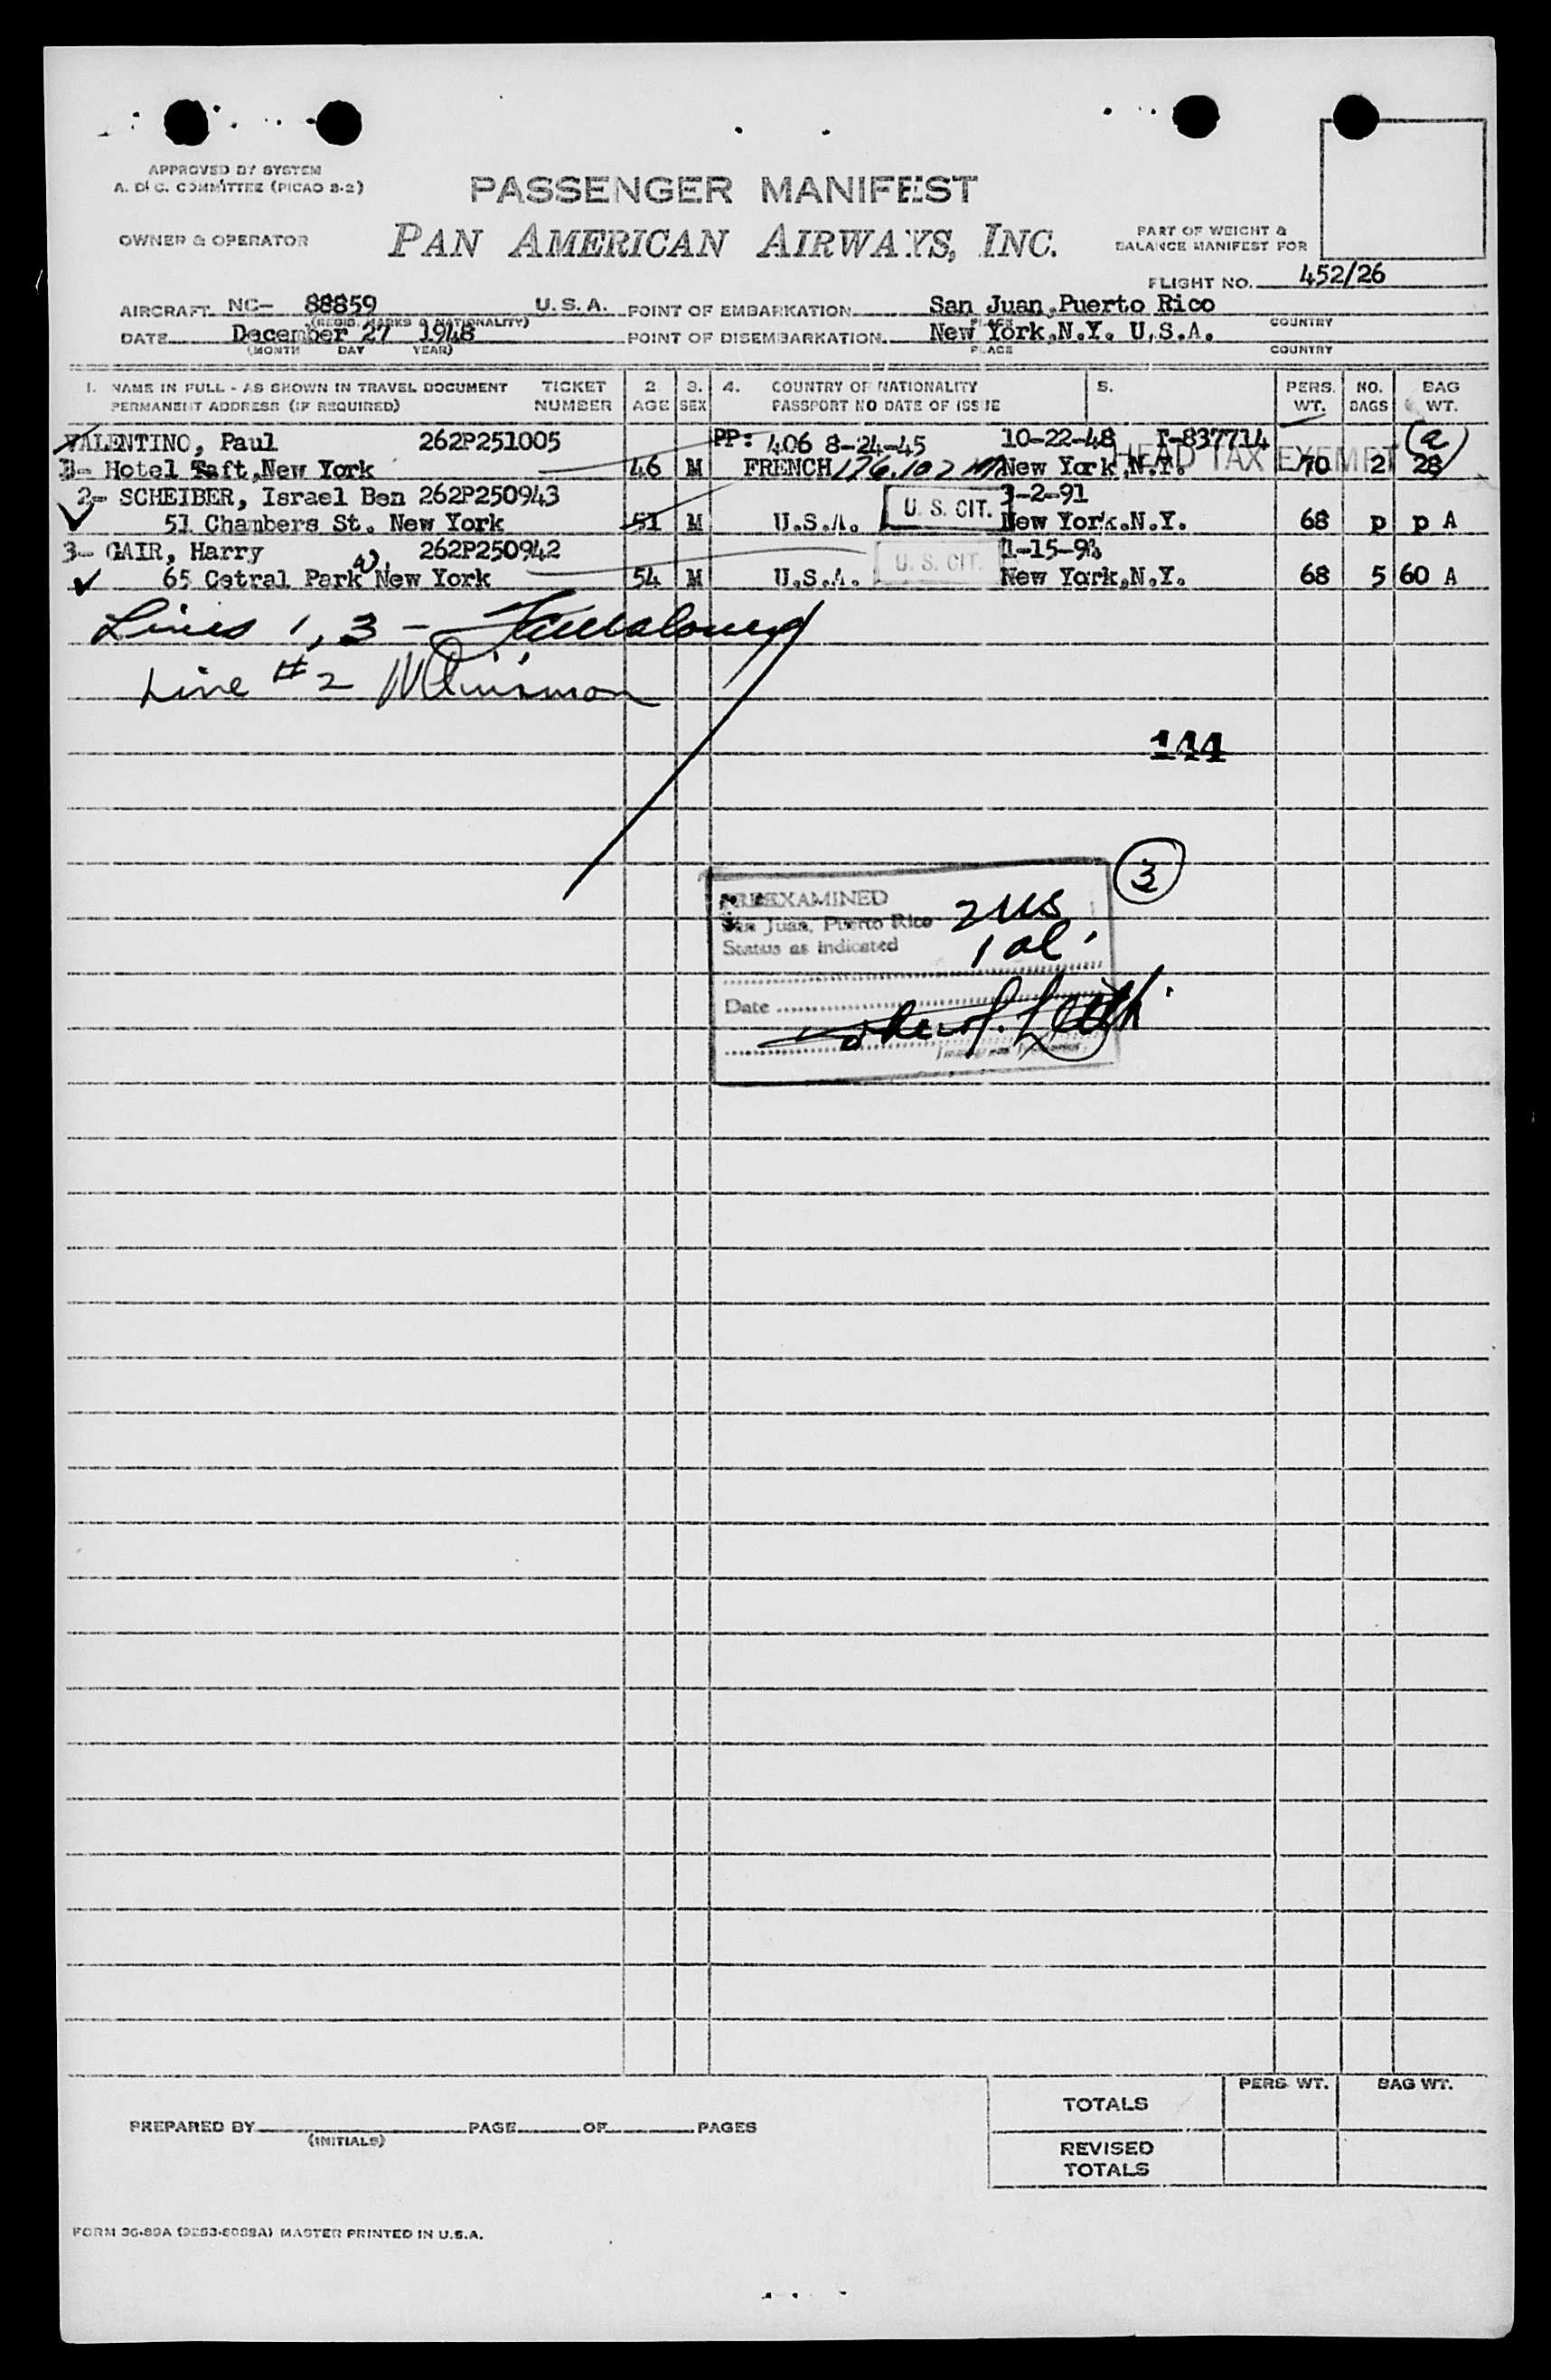 APPROVED BY SYSTEM
A. D. C. COMMITTEE (PICAO 2-2)
PASSENGER MANIFEST
OWNER & OPERATOR
PAN AMERICAN AIRWAYS, INC.
PART OF WEIGHT &
BALANCE MANIFEST FOR
FLIGHT NO. 452/26
AIRCRAFT NC- 88859 U.S.A. POINT OF EMBARKATION San Juan,Puerto Rico
(REGIS. MARKS & NATIONALITY) PLACE COUNTRY
DATE December 27 1948 POINT OF DISEMBARKATION New York,N.Y. U.S.A.
(MONTH DAY YEAR) PLACE COUNTRY
1. NAME IN FULL - AS SHOWN IN TRAVEL DOCUMENT TICKET 2. 3. 4. COUNTRY OF NATIONALITY 5. PERS. NO. BAG
PERMANENT ADDRESS (IF REQUIRED) NUMBER AGE SEX PASSPORT NO DATE OF ISSUE WT. BAGS WT.
VALENTINO, Paul 262P251005 PP: 406 8-24-45 10-22-48 T-837714 (a)
HEAD TAX EXEMPT
1- Hotel Taft,New York 46 M FRENCH 176.102 New York,N.Y. 70 2 28
2- SCHEIBER, Israel Ben 262P250943 U. S. CIT. 3-2-91
51 Chambers St. New York 51 M U.S.A. New York.N.Y. 68 p p A
3- GAIR, Harry 262P250942 U. S. CIT. 1-15-94
65 Cetral Park W. New York 54 M U.S.A. New York,N.Y. 68 5 60 A
Lines 1, 3 -
Line #2
144
3
PREEXAMINED
San Juan, Puerto Rico 2 US
Status as indicated 1 al.
Date
TOTALS PERS. WT. BAG WT.
PREPARED BY PAGE OF PAGES
(INITIALS)
REVISED
TOTALS
FORM 36-89A MASTER PRINTED IN U.S.A.